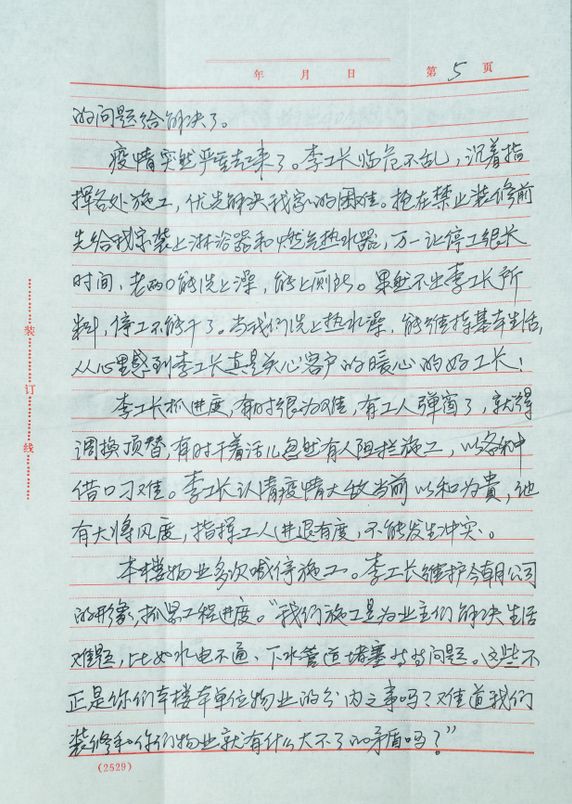 年 月 日 第 5 页
的问题给解决了。
疫情突然严重起来了。李工长临危不乱，沉着指
挥各处施工，优先解决我家的困难。抢在禁止装修前
先给我家装上淋浴器和燃气热水器，万一让停工很长
时间，老两口能洗上澡，能上厕所。果然不出李工长所
料，停工不能干了。当我们洗上热水澡，能维持基本生活，
从心里感到李工长真是关心客户的暖心的好工长！
李工长抓进度，有时很为难，有工人弹窗了，就得
调换顶替，有时干着活儿忽然有人阻拦施工，以各种
借口刁难。李工长认清疫情大敌当前以和为貴，他
有大将风度，指挥工人进退有度，不能发生冲突。
本楼物业多次喊停施工。李工长维护今朝公司
的形象，抓紧工程进度。“我们施工是为业主们解决生活
难题，比如水电不通、下水管道堵塞等等问题。这些不
正是你们本楼本单位物业的分内之事吗？难道我们
装修和你们物业就有什么大不了的矛盾吗？”
装订线
(2529)